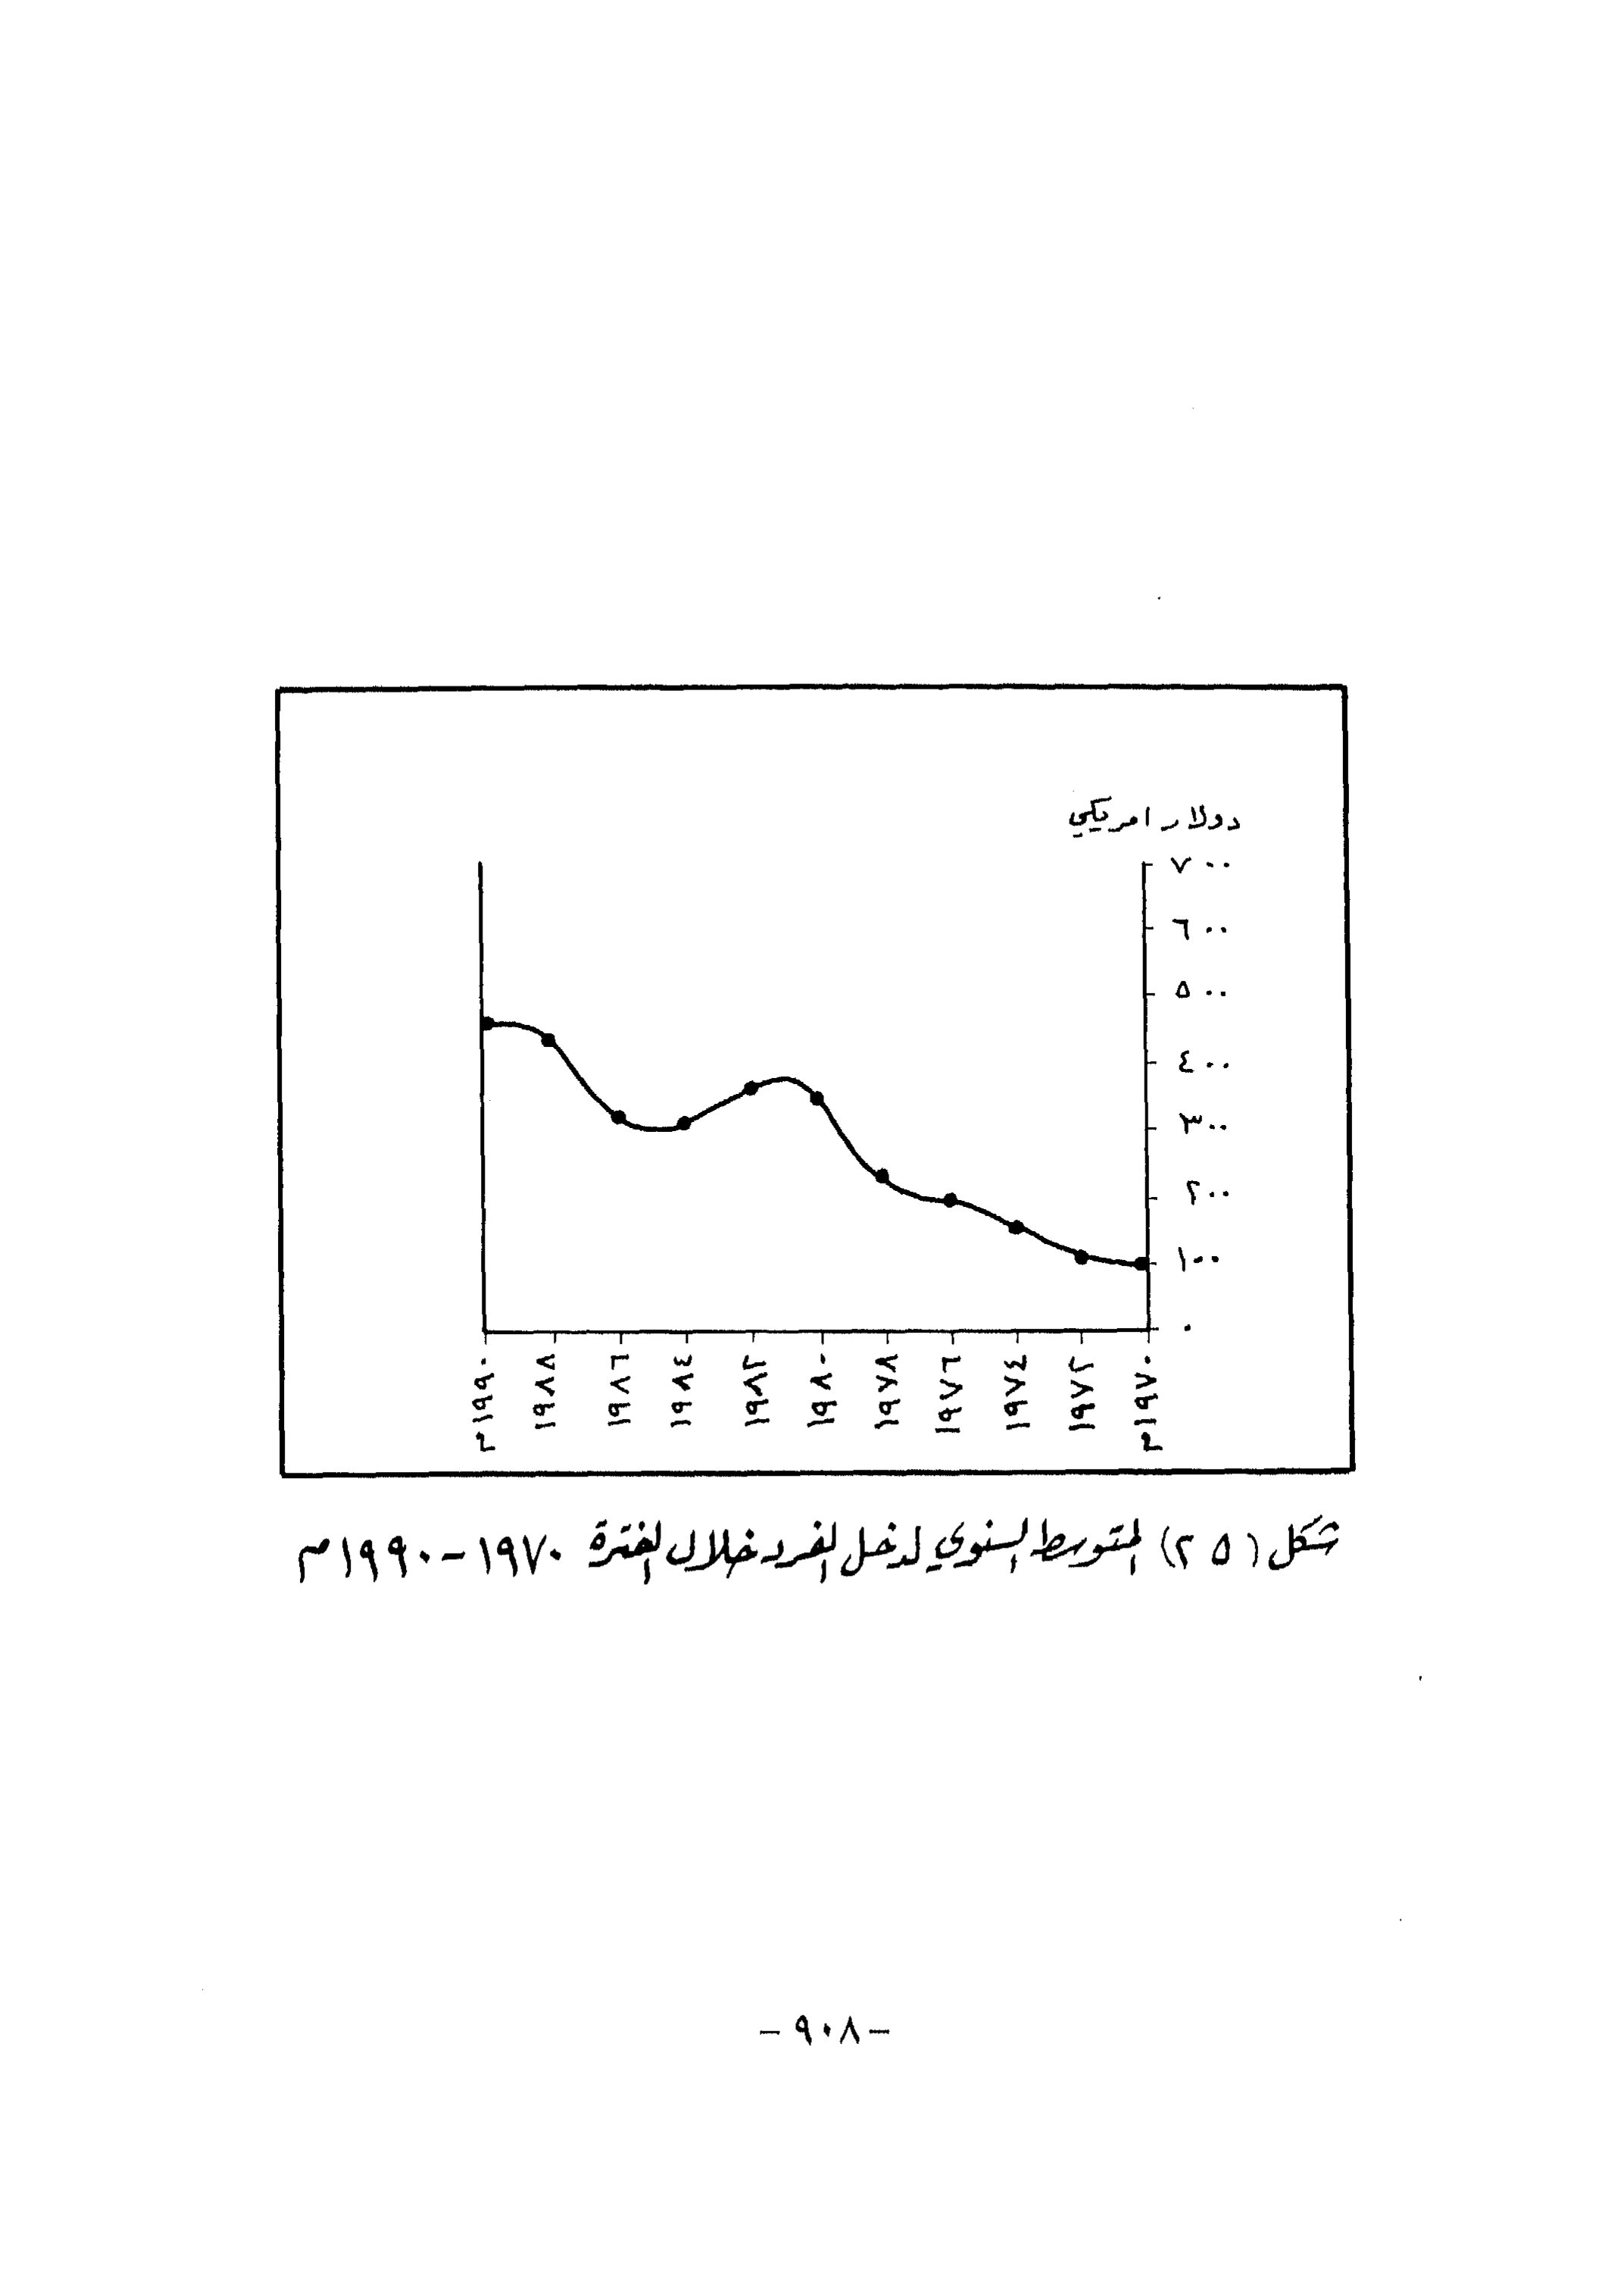 دولار امريكي
٧٠٠
٦٠٠
٥٠٠
٤٠٠
٣٠٠
٢٠٠
١٠٠
٠
١٩٧٠م
١٩٧٢
١٩٧٤
١٩٧٦
١٩٧٨
١٩٨٠
١٩٨٢
١٩٨٤
١٩٨٦
١٩٨٨
١٩٩٠م
شكل (٢٥) المتوسط السنوي لدخل الفرد خلال الفترة ١٩٧٠-١٩٩٠م
- ٩٠٨ -